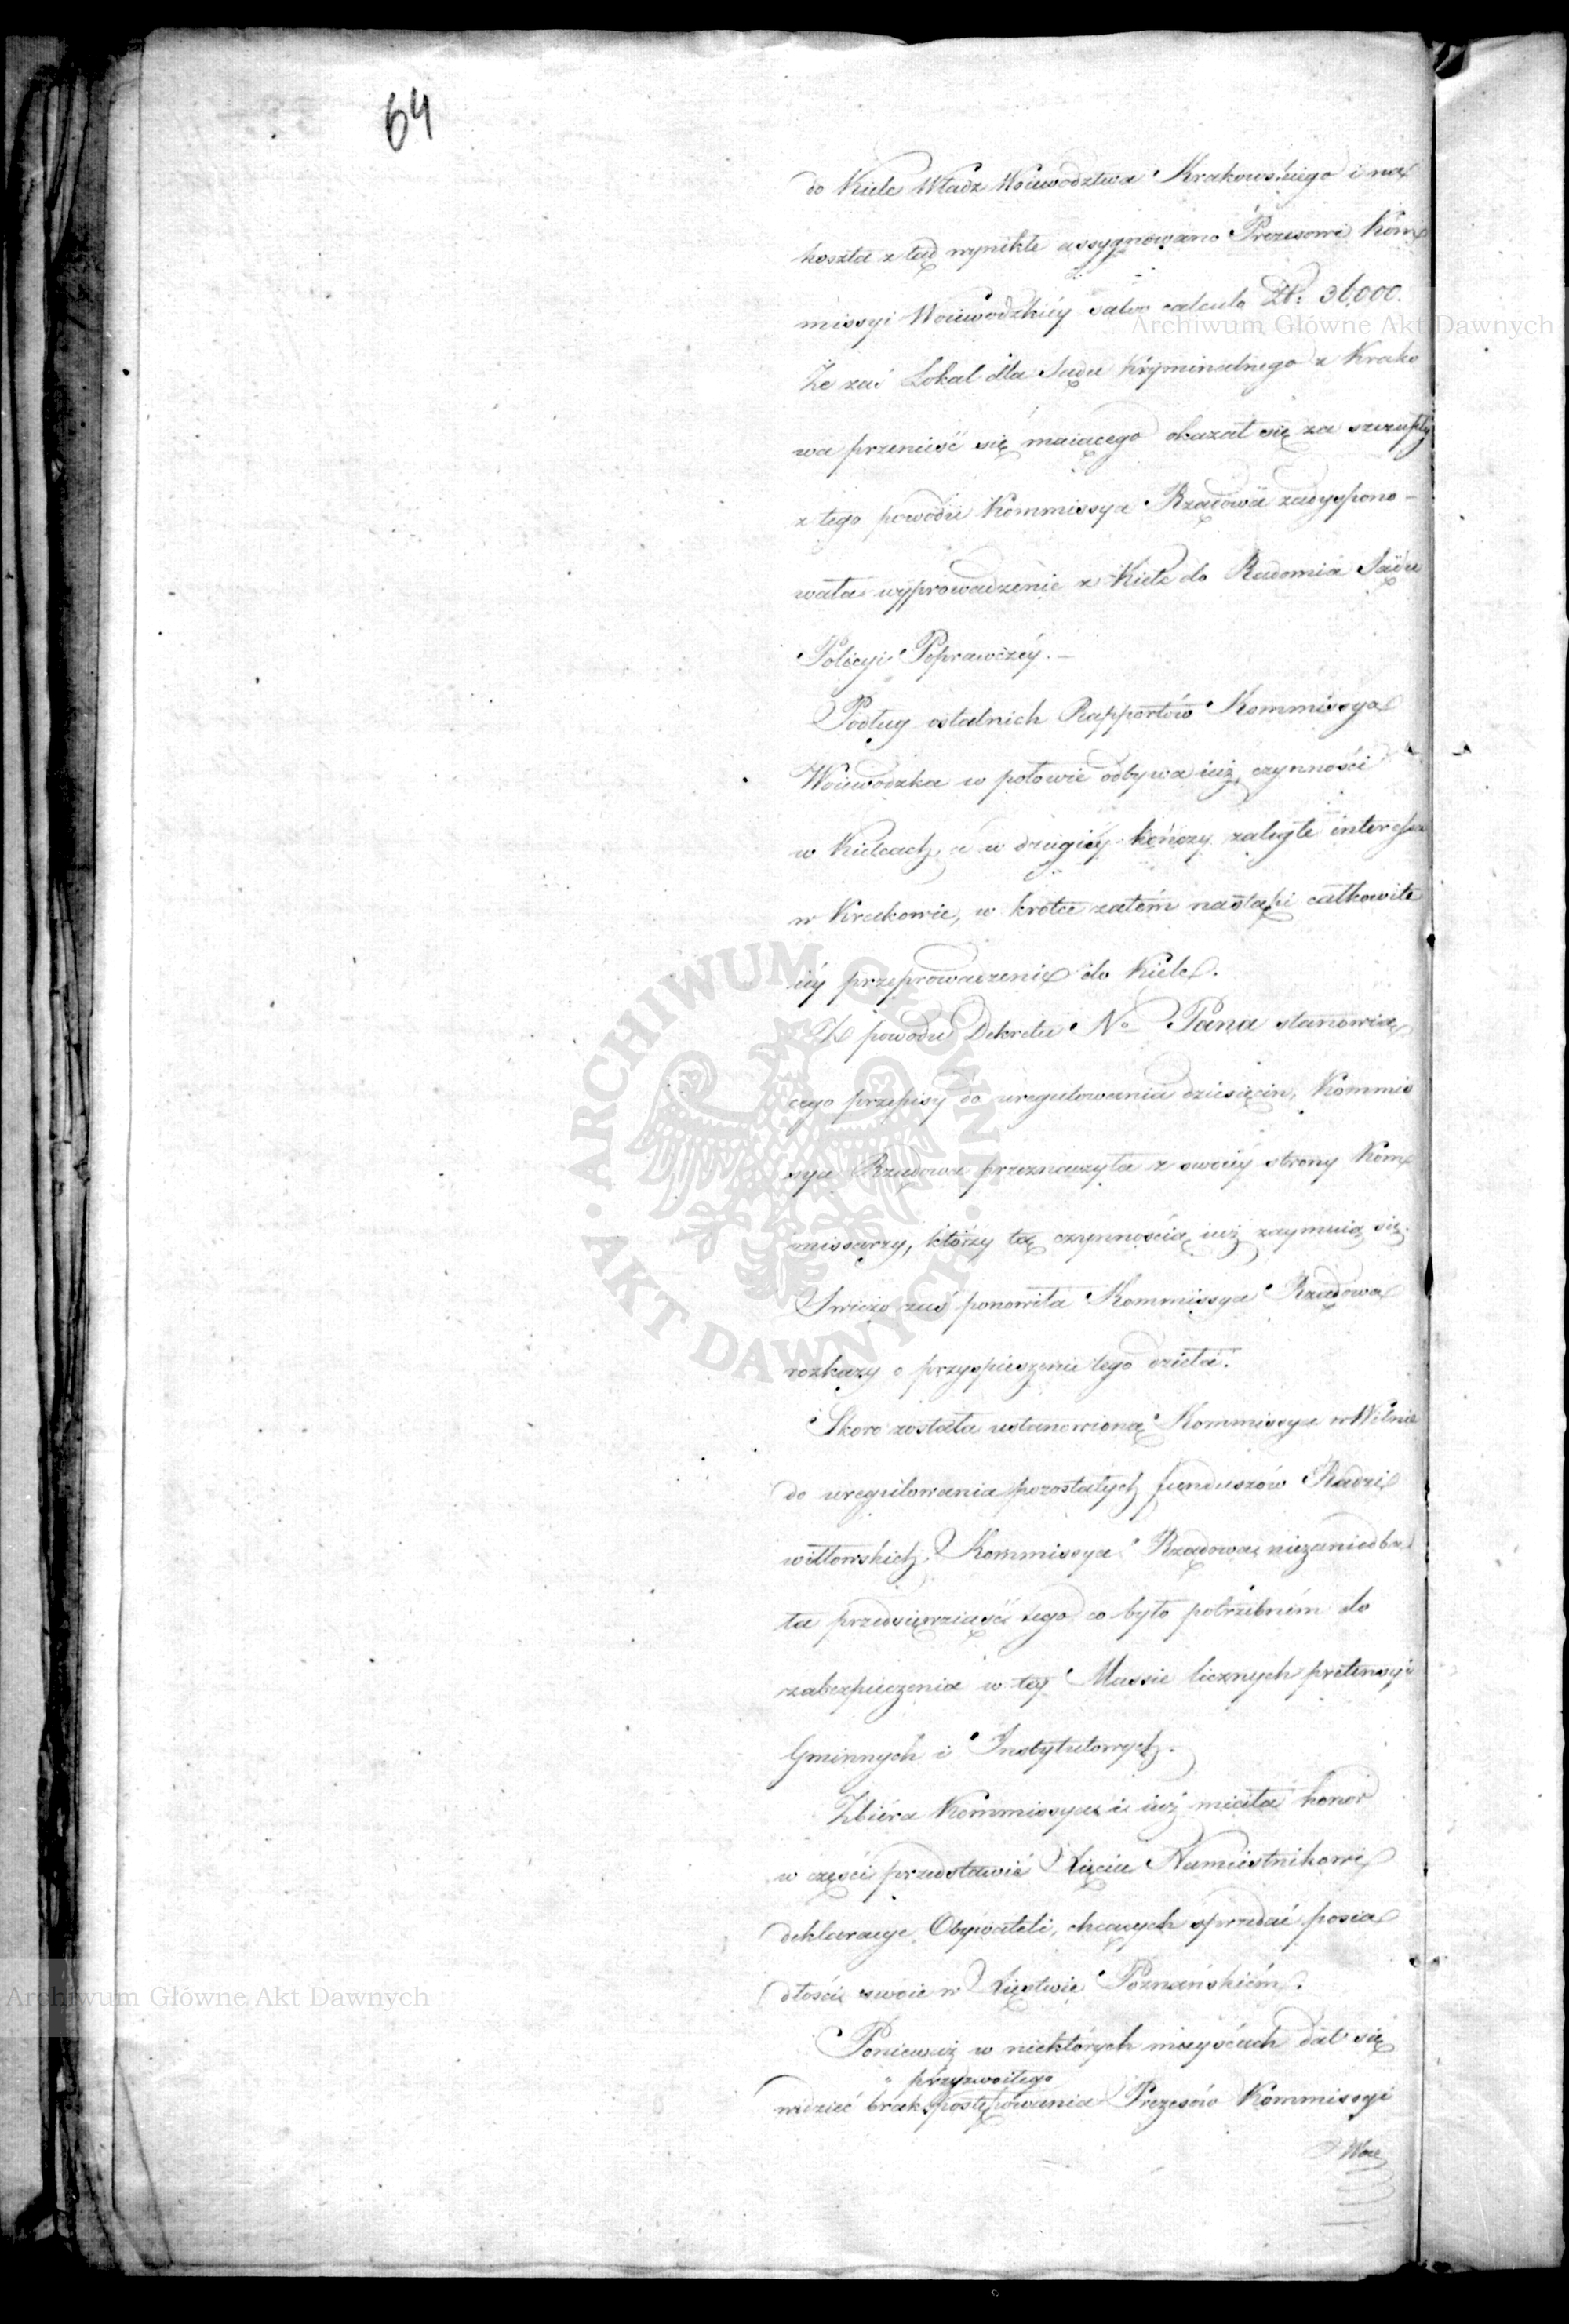 64
do Kielc Władz Woiewodztwa Krakowskiego i na
koszta z tąd wynikłe assygnowano Prezesowi Kom
missyi Woiewodzkiéy salvo calculo Zł: 36,000.
Archiwum Główne Akt Dawnych
Że zaś Lokal dla Sądu Kryminalnego z Krako
wa przenieść się maiącego okazał się za szczupły
z tego powodu Kommissya Rządowa zadyspono-
wała wyprowadzenie z Kielc do Radomia Sądu
Policyi Poprawczéy. –
Podług ostatnich Rapportów Kommissya
Woiewodzka w połowie odbywa iuż czynności
w Kielcach, a w drugiéy kończy zaległe interessa
w Krakowie, w krótce zatém nastąpi całkowite
iéy przeprowadzenie do Kielc.
Z powodu Dekretu No Pana stanowią
cego przepisy do uregulowania dziesięcin, Kommis
sya Rządowa przeznaczyła z swoiéy strony Kom
missarzy, którzy tą czynnością iuż zaymuią się.
Swieżo zaś ponowiła Kommissya Rządowa
rozkazy o przyspieszenie tego dzieła.
Skoro została ustanowioną Kommissya w Wilnie
do uregulowania pozostałych funduszów Radzi
wiłłowskich, Kommissya Rządowa niezaniedba
ła przedsięwziąść tego co było potrzebném do
zabezpieczenia w téy Massie licznych pretensyi
Gminnych i Instytutowych.
Zbiéra Kommissya i iuż miała honor
w części przedstawić Xięciu Namiestnikowi
deklaracye Obywateli, chcących sprzedać posia
dłości swoie w Xięstwie Poznańskiém.
Archiwum Główne Akt Dawnych
Ponieważ w niektórych mieyscach dał się
przyzwoitego
widzieć brak postępowania Prezesów Kommissyi
Woe
ARCHIWUM GŁÓWNE AKT DAWNYCH